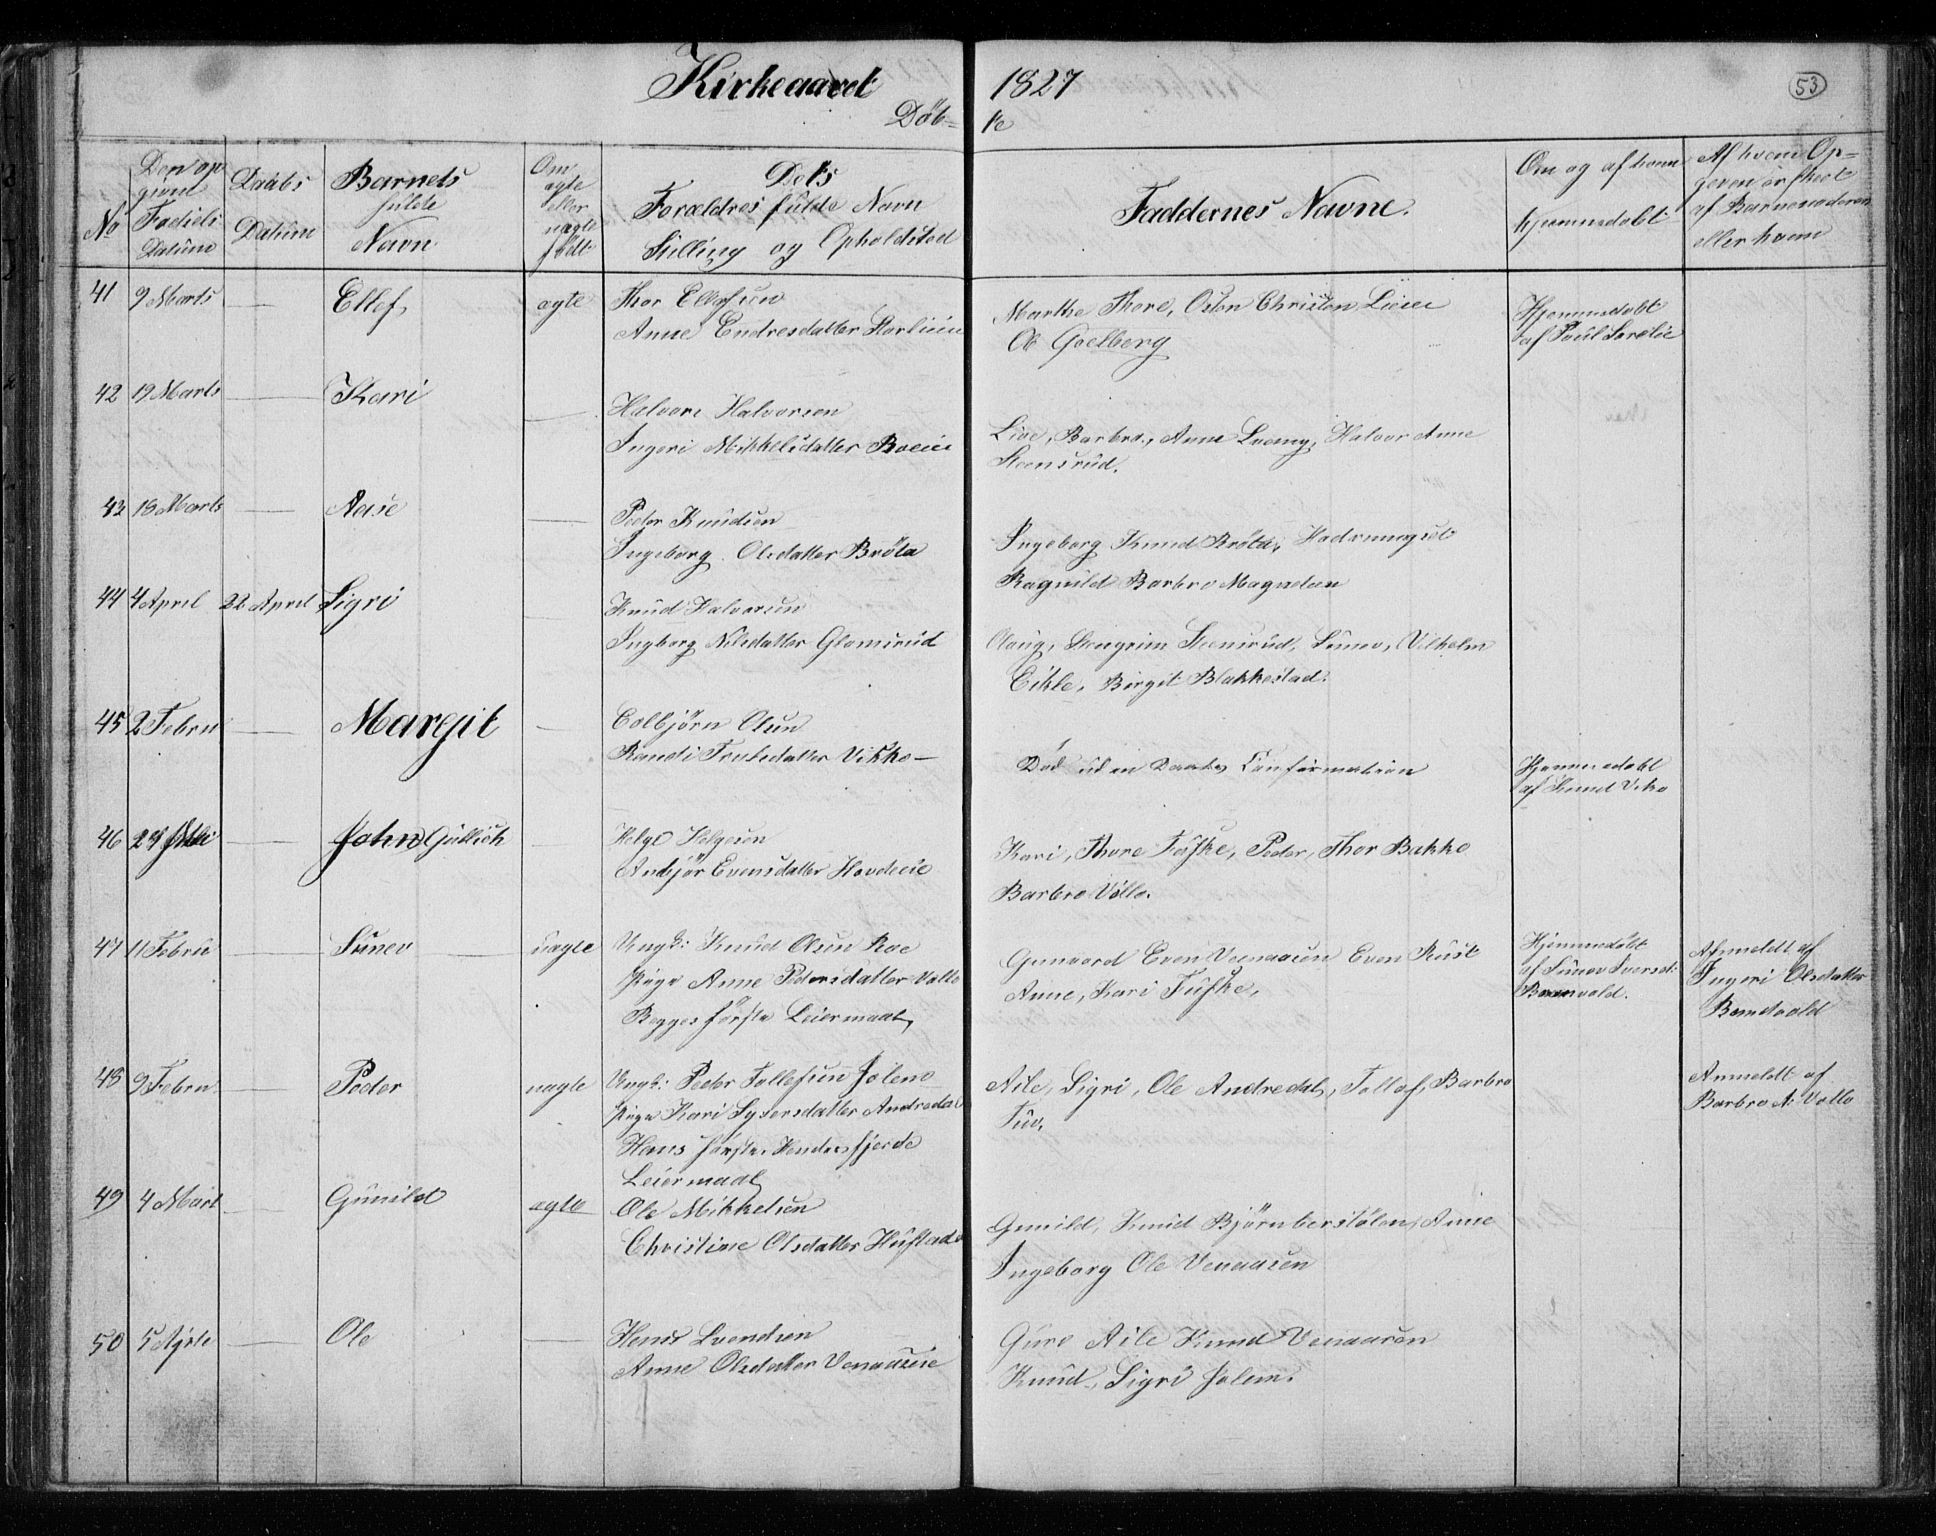 Kirkeaaret 1827
53
Døb= te
No
Den op
given
Fødsels
Datum
Daabs
Datum
Barnets
fulde
Navn
Om
ægte
eller
uægte
født
Dets
Forældres fulde Navn
Stilling og Opholdsted
Faddernes Navne.
Om og af hvem
hjemmedøbt
Af hvem Op=
given er skeet
af Barnemoderen
eller hvem
41 9 Marts — Ellef, ægte Thor Ellefsen
Anne Endresdatter
Marthe Thore, Osten Christen Lieie
Ole
Hjemmedøbt
af Poul
42 19 Marts — Kari — Halvore Halvorsen
Ingeri Mikkelsdatter
Live, Barbro, Anne Halvor Anne
Steensrud.
43 18 Marts — Aase — Peder Knudsen
Ingeborg Olsdatter Bröta
Ingeborg Knud Bröta,
Ragnild Barbro
44 4 April 22 April Sigri — Knud Halvorsen
Ingborg Nilsdatter Glomsrud
Olaug, Steengrim Steensrud, Sunev, Vilhelm
Eikle, Birgit Blakkestad.
45 2 Febru — Margit — Colbjörn Olsen
Randi Trulsdatter Vikko —
Död uden Daabs Confirmation
Hjemmedøbt
af Knud Viko
46 — John Gullich — Helge Helgesen
Andjør Evensdatter Hovdeeie
Kari, Thore Fulske, Peder, Thor Bakko
Barbro Vollo.
47 11 Febru — Sunev uægte Ungk: Knud Olsen Roe
Pige Anne Pedersdatter Vollo
Begges første Leiermaal
Gunvord Even Venaasen Even Rust
Anne, Kari Fulske,
Hjemmedøbt
af Sunev Iversd:
Anmeldt af
Ingeri Olsdatter
48 9 Febru — Peder uægte Ungk: Peder Tollefsen Jolem
Pige Kari Syversdatter Andredal
Hans første Hendes fjerde
Leiermaal
Aile, Sigri, Ole Andredal, Tollef, Barbro
Tuv.
Anmeldt af
Barbro A: Vollo
49 4 Mart — Gunild ægte Ole Mikkelsen
Christine Olsdatter
Gunild, Knud Björnberstölen, Anne
Ingeborg Ole Venaasen
50 5 — Ole — Svendsen
Anne Olsdatter Venaaseie
Guro Aile Knud Venaasen
Knud, Sigri Jolem.